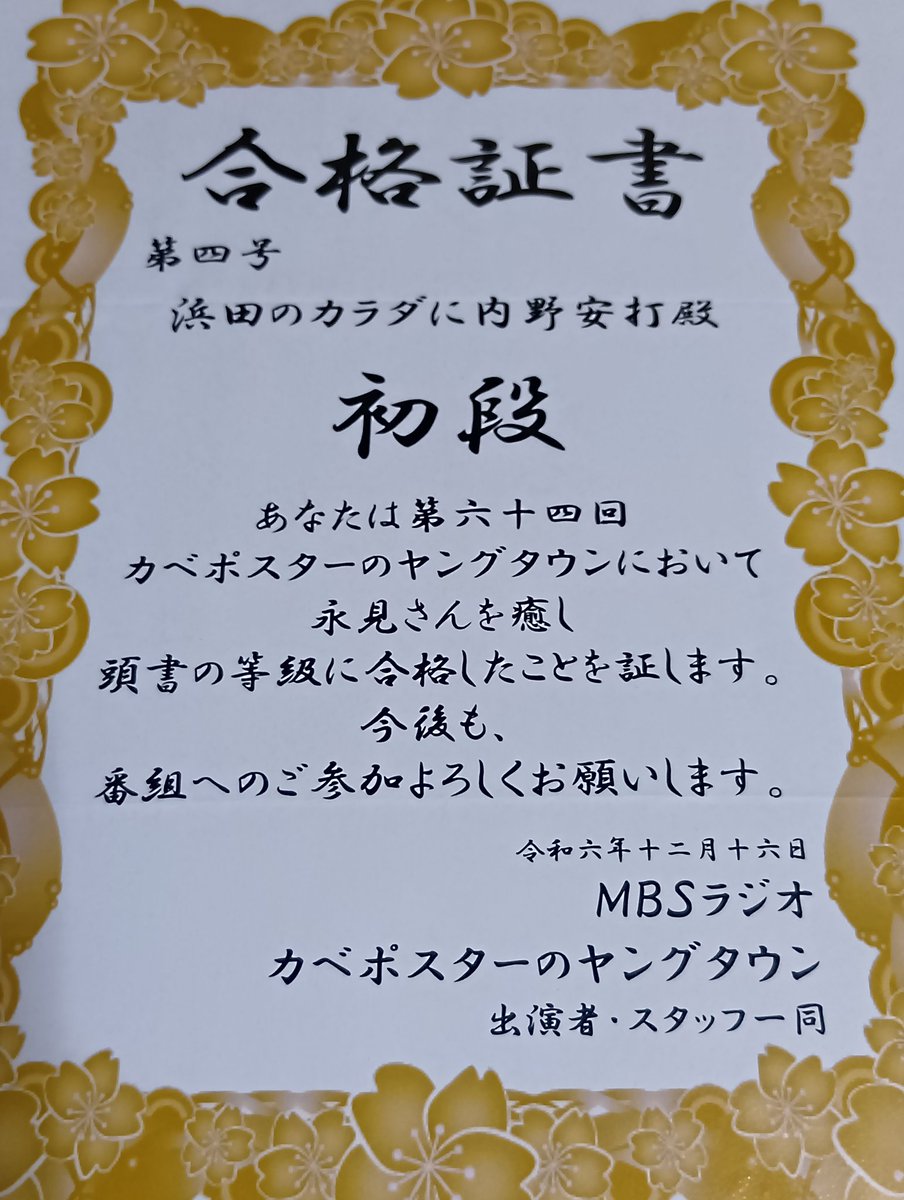 合格証書
第四号
浜田のカラダに内野安打殿
初段
あなたは第六十四回
カベポスターのヤングタウンにおいて
永見さんを癒し
頭書の等級に合格したことを証します。
今後も、
番組へのご参加よろしくお願いします。
令和六年十二月十六日
MBSラジオ
カベポスターのヤングタウン
出演者・スタッフ一同